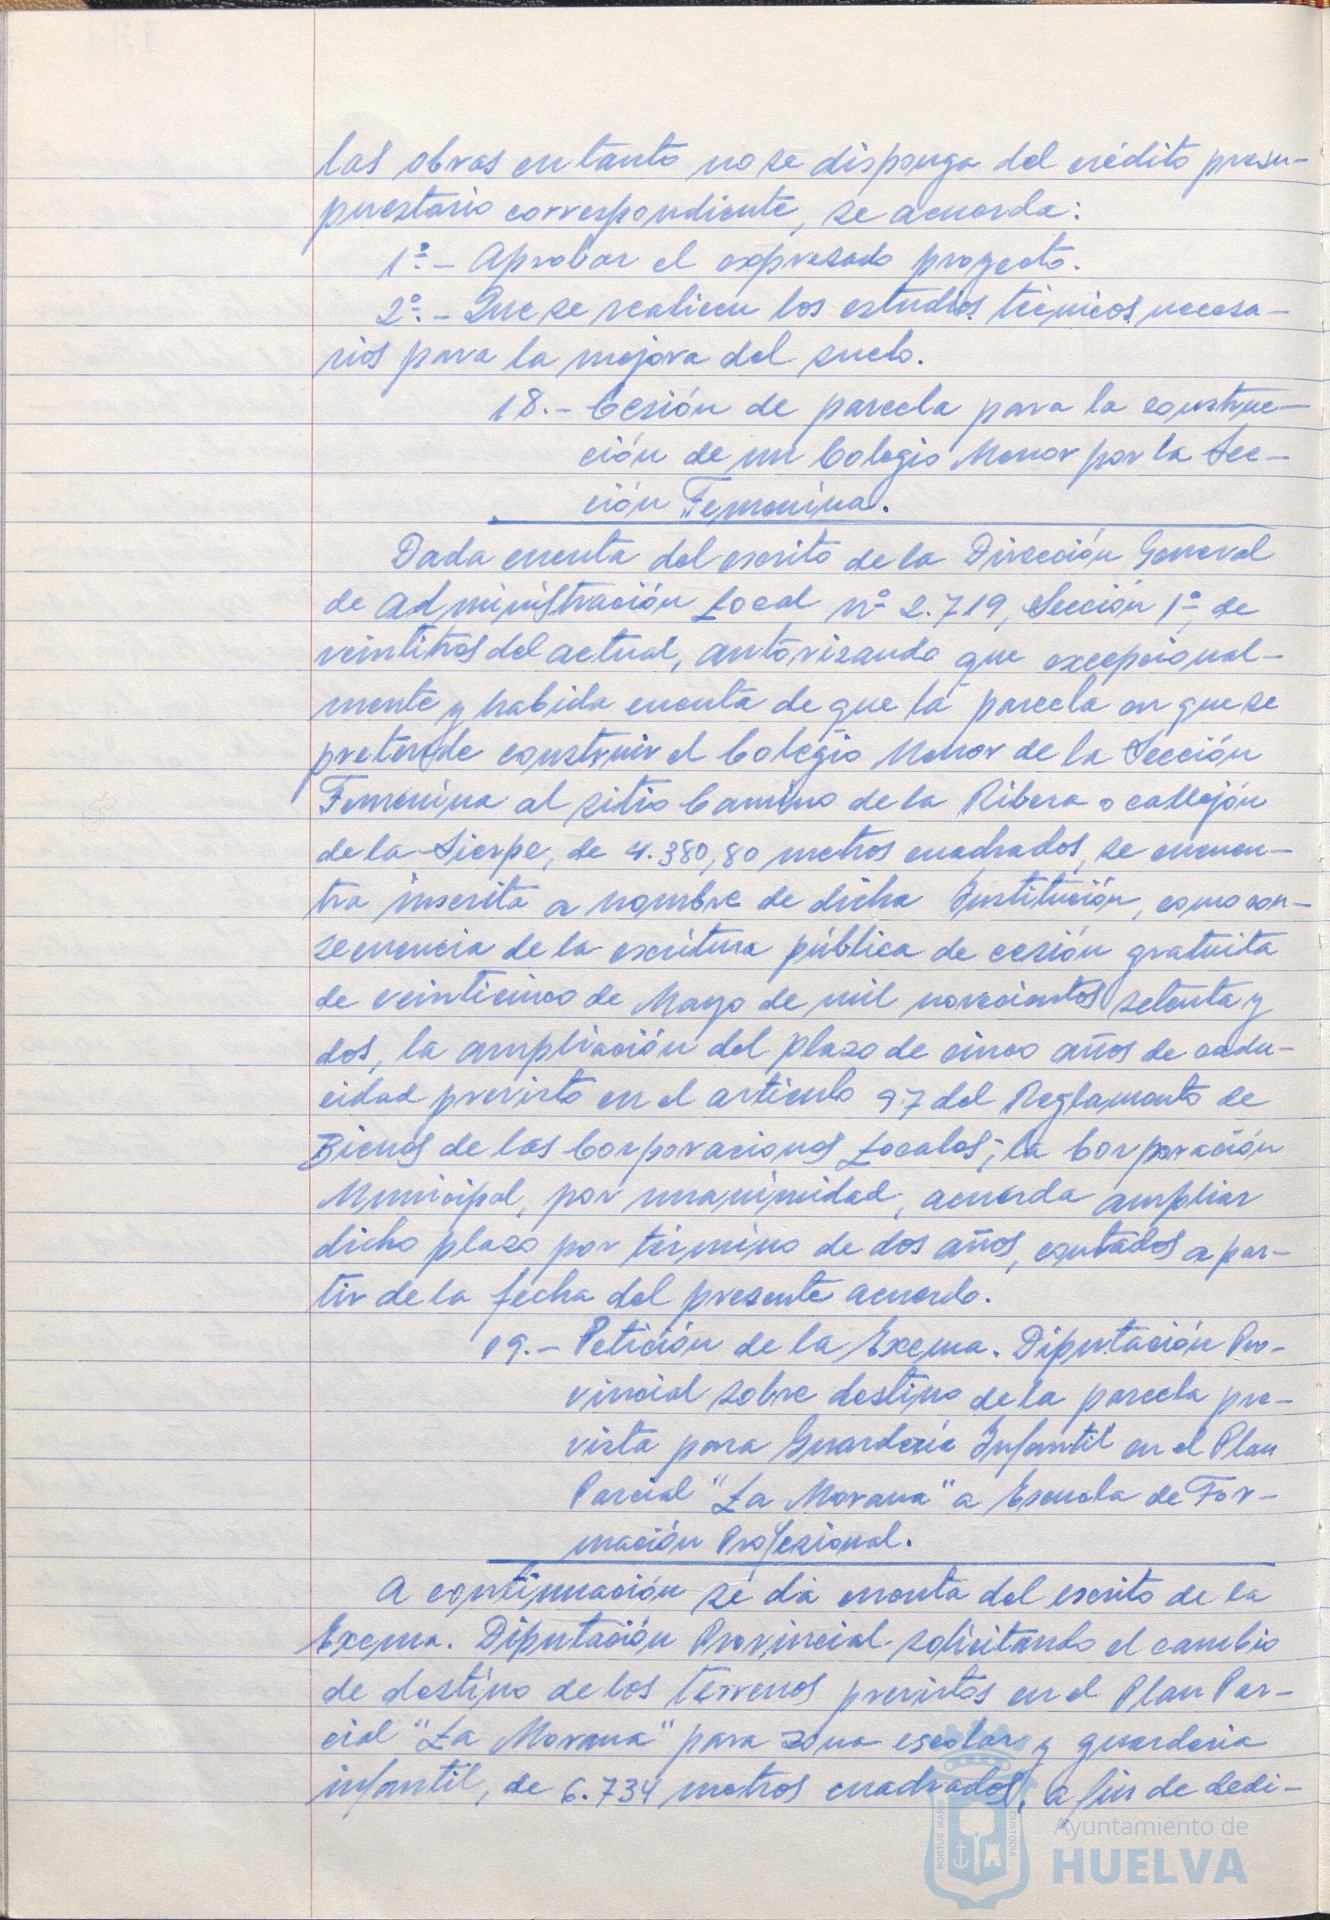 las obras en tanto no se disponga del crédito presu-
puestario correspondiente, se acuerda:
1º.- Aprobar el expresado proyecto.
2º.- Que se realicen los estudios técnicos necesa-
rios para la mejora del suelo.
18.- Cesión de parcela para la construc-
ción de un Colegio Menor por la Sec-
ción Femenina.
Dada cuenta del escrito de la Dirección General
de Administración Local nº 2.719, Sección 1ª, de
veintitres del actual, autorizando que excepcional-
mente y habida cuenta de que la parcela en que se
pretende construir el Colegio Menor de la Sección
Femenina al sitio Camino de la Ribera o callejón
de la Sierpe, de 4.380,80 metros cuadrados, se encuen-
tra inscrita a nombre de dicha Institución, como con-
secuencia de la escritura pública de cesión gratuita
de veinticinco de Mayo de mil novecientos setenta y
dos, la ampliación del plazo de cinco años de cadu-
cidad previsto en el artículo 97 del Reglamento de
Bienes de las Corporaciones Locales; la Corporación
Municipal, por unanimidad, acuerda ampliar
dicho plazo por término de dos años, contados a par-
tir de la fecha del presente acuerdo.
19.- Petición de la Excma. Diputación Pro-
vincial sobre destino de la parcela pre-
vista para Guardería Infantil en el Plan
Parcial "La Morana" a Escuela de For-
mación Profesional.
A continuación se dá cuenta del escrito de la
Excma. Diputación Provincial solicitando el cambio
de destino de los terrenos previstos en el Plan Par-
cial "La Morana" para zona escolar y guardería
infantil, de 6.734 metros cuadrados, a fin de dedi-
Ayuntamiento de
HUELVA
PORTUS MARIS
CUSTODIA